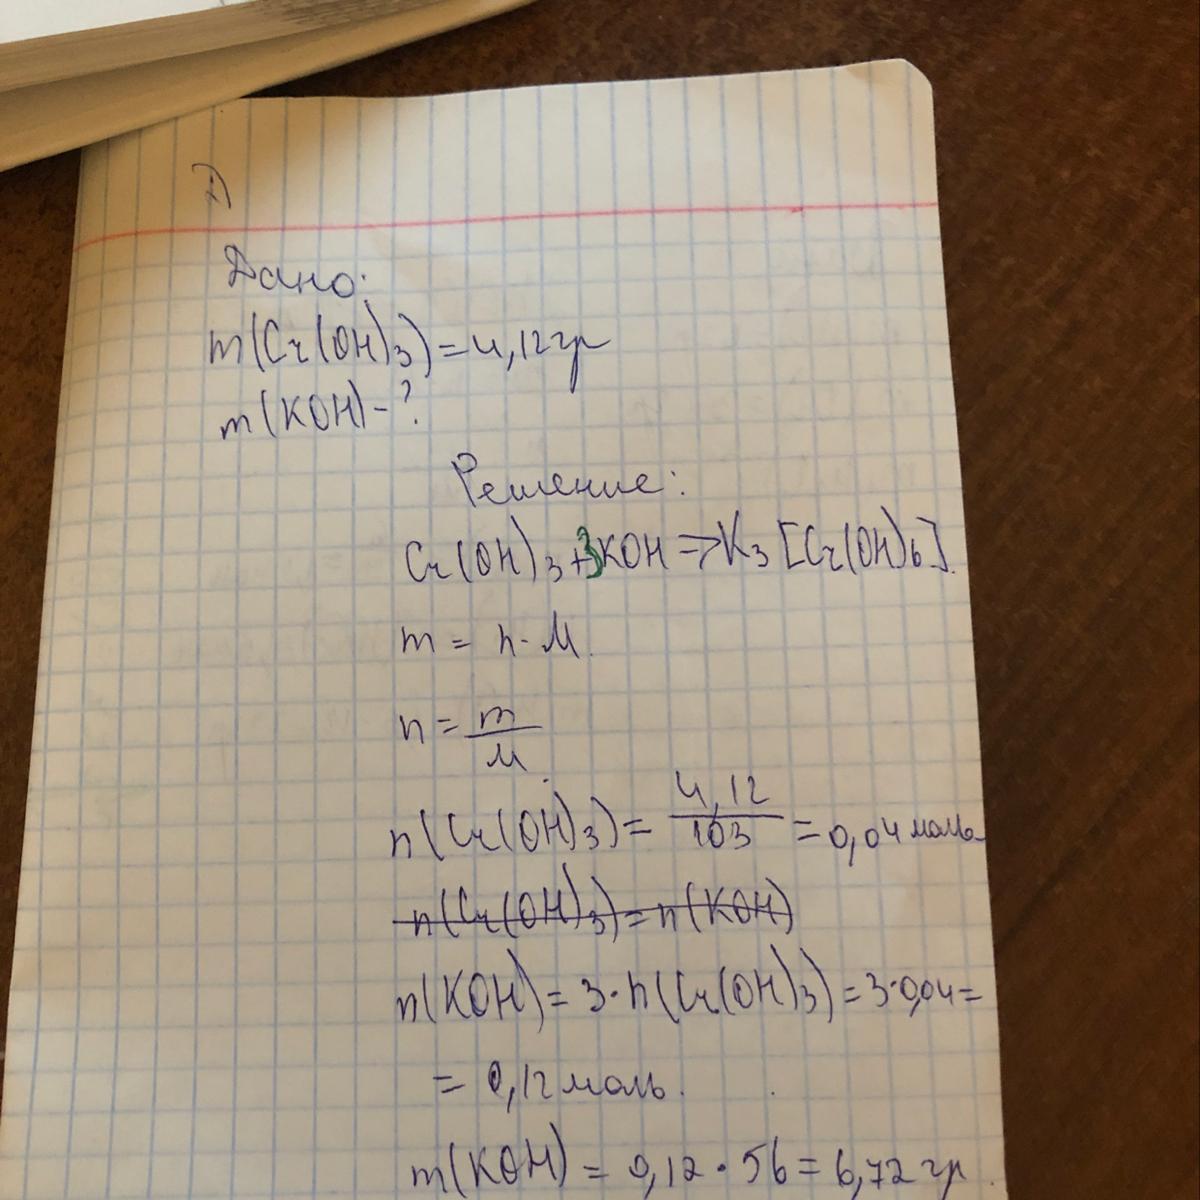 Д
Дано:
m(Cr(OH)3)=4,12гр
m(KOH)-?
Решение:
Cr(OH)3+3KOH=>K3[Cr(OH)6].
m = n·M.
n = m/M.
n(Cr(OH)3)= 4,12/103 = 0,04 моль
n(Cr(OH)3)=n(KOH)
n(KOH)=3·n(Cr(OH)3)=3·0,04=
= 0,12 моль.
m(KOH) = 0,12·56=6,72 гр.